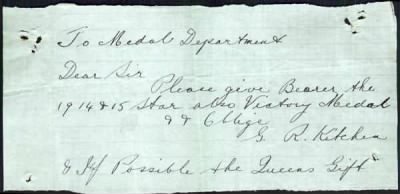 To Medal Department
Dear Sir
Please give Bearer, the
1914 & 15 Star also Victory Medal
& Oblige
G. R. Kitchen
& If Possible the Queens Gift